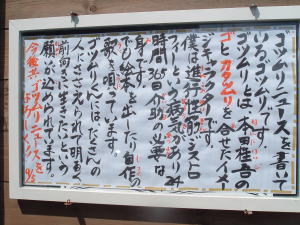 ゴツムリニュースを書いて
いるゴツムリです。
ゴツムリとは本田桂吾の
ゴとカタツムリを合せたイメー
ジキャラクターです。
僕は進行性筋ジストロ
フィーという病気であり、24
時間365日介助の必要な
身です。
でも絵本を出したり自作の
歌を唄っています。
ゴツムリくんにはたくさんの
人にささえられて明るく
前向きに生きたいという
願いが込められています。
今後共ゴツムリニュースを
よろしく!!